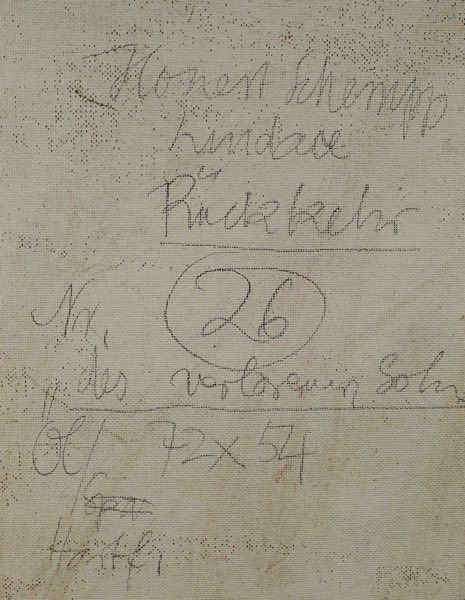 Honest Schempp
Lindau
Rückkehr
Nr. 26
des verlorenen Sohn
Öl / 72 x 54
Hartf